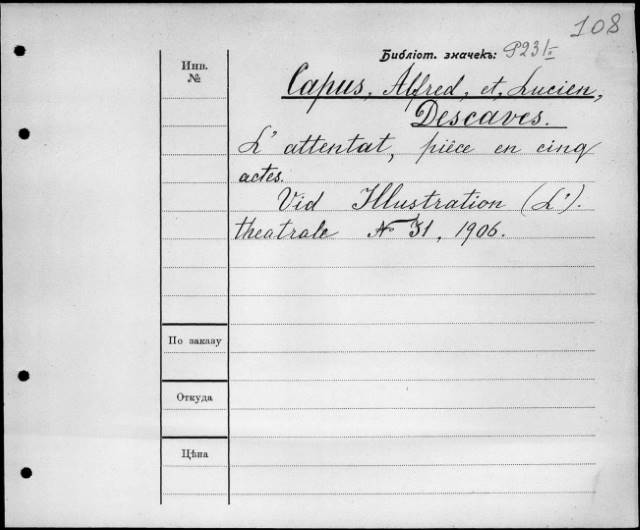 108
Библіот. значекъ: P231/II
Инв.
№
Capus, Alfred, et, Lucien,
Descaves.
L' attentat, pièce en cinq
actes.
Vid Illustration (L').
theatrale № 31, 1906.
По заказу
Откуда
Цѣна